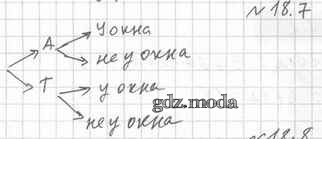 № 18.7
У окна
А
не у окна
Т
у окна
gdz.moda
не у окна
№ 18.8